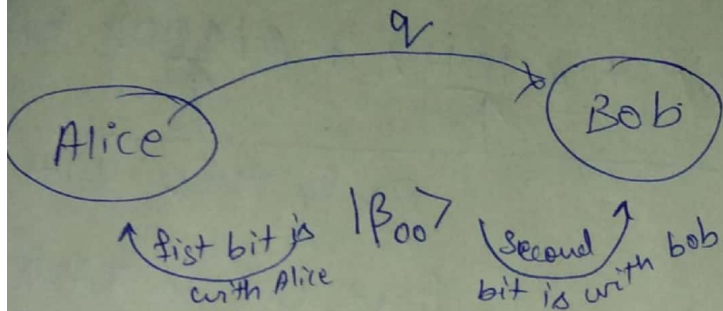 q
Alice
Bob
|β00>
fist bit is
with Alice
second
bit is with bob